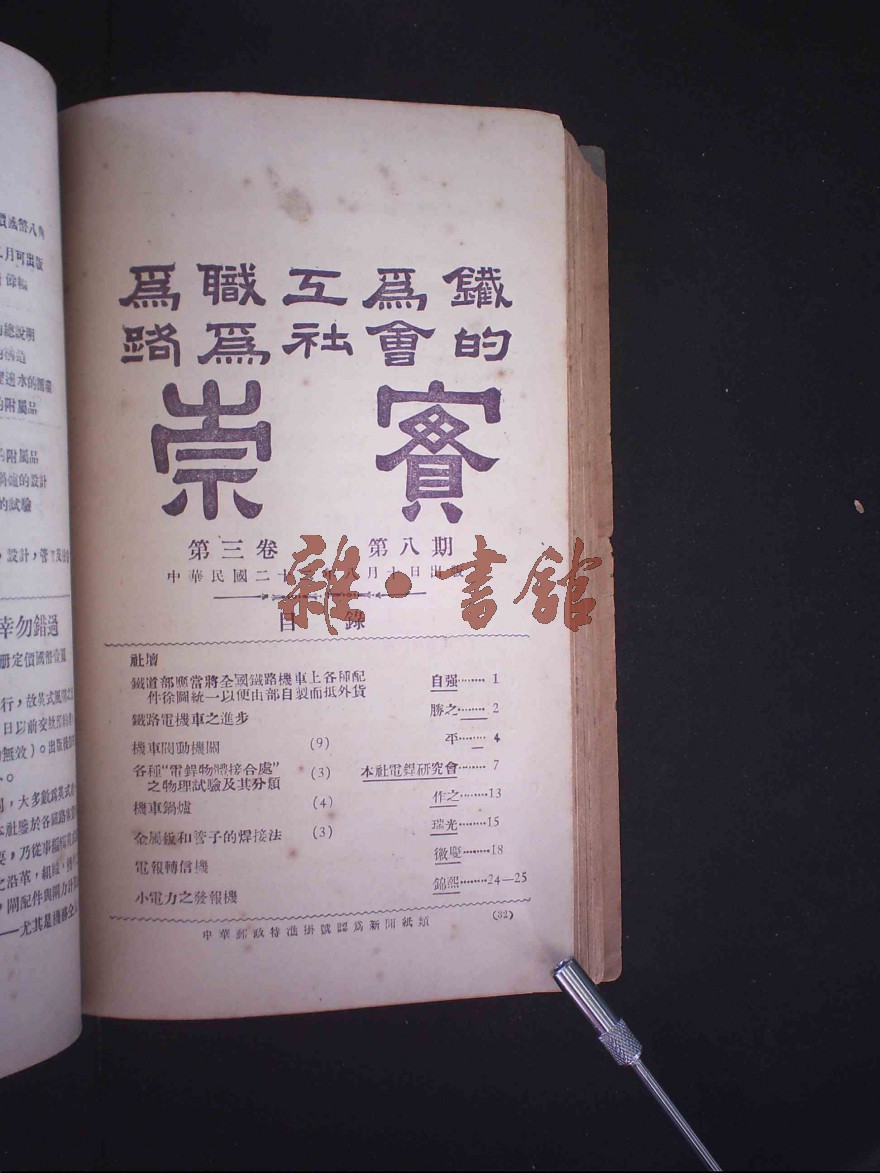 價減幣八角
二月可出版
的總說明
的構造
的附屬品
的附屬品
鍋爐的設計
的試驗
幸勿錯過
册定價國幣壹圓
日以前交
無效)。出版後
，大多數爲英式
本社鑒於各鐵路
要，乃從事
之沿革，組織，
，閘配件與閘力計
——尤其是機務
爲職工爲鐵
路爲社會的
崇實
第三卷 第八期
中華民國二十三年八月十日出版
雜·書館
目錄
社壇
鐵道部應當將全國鐵路機車上各種配
件徐圖統一以便由部自製而抵外貨 自强········ 1
鐵路電機車之進步 勝之········ 2
機車閥動機關 (9) 平········ 4
各種“電銲物體接合處” (3) 本社電銲研究會········ 7
之物理試驗及其分類
機車鍋爐 (4) 作之········13
金屬鈑和管子的焊接法 (3) 瑞光········15
電報轉信機 徵慶········18
小電力之發報機 錦熙········24—25
中華郵政特准掛號認爲新聞紙類 (32)